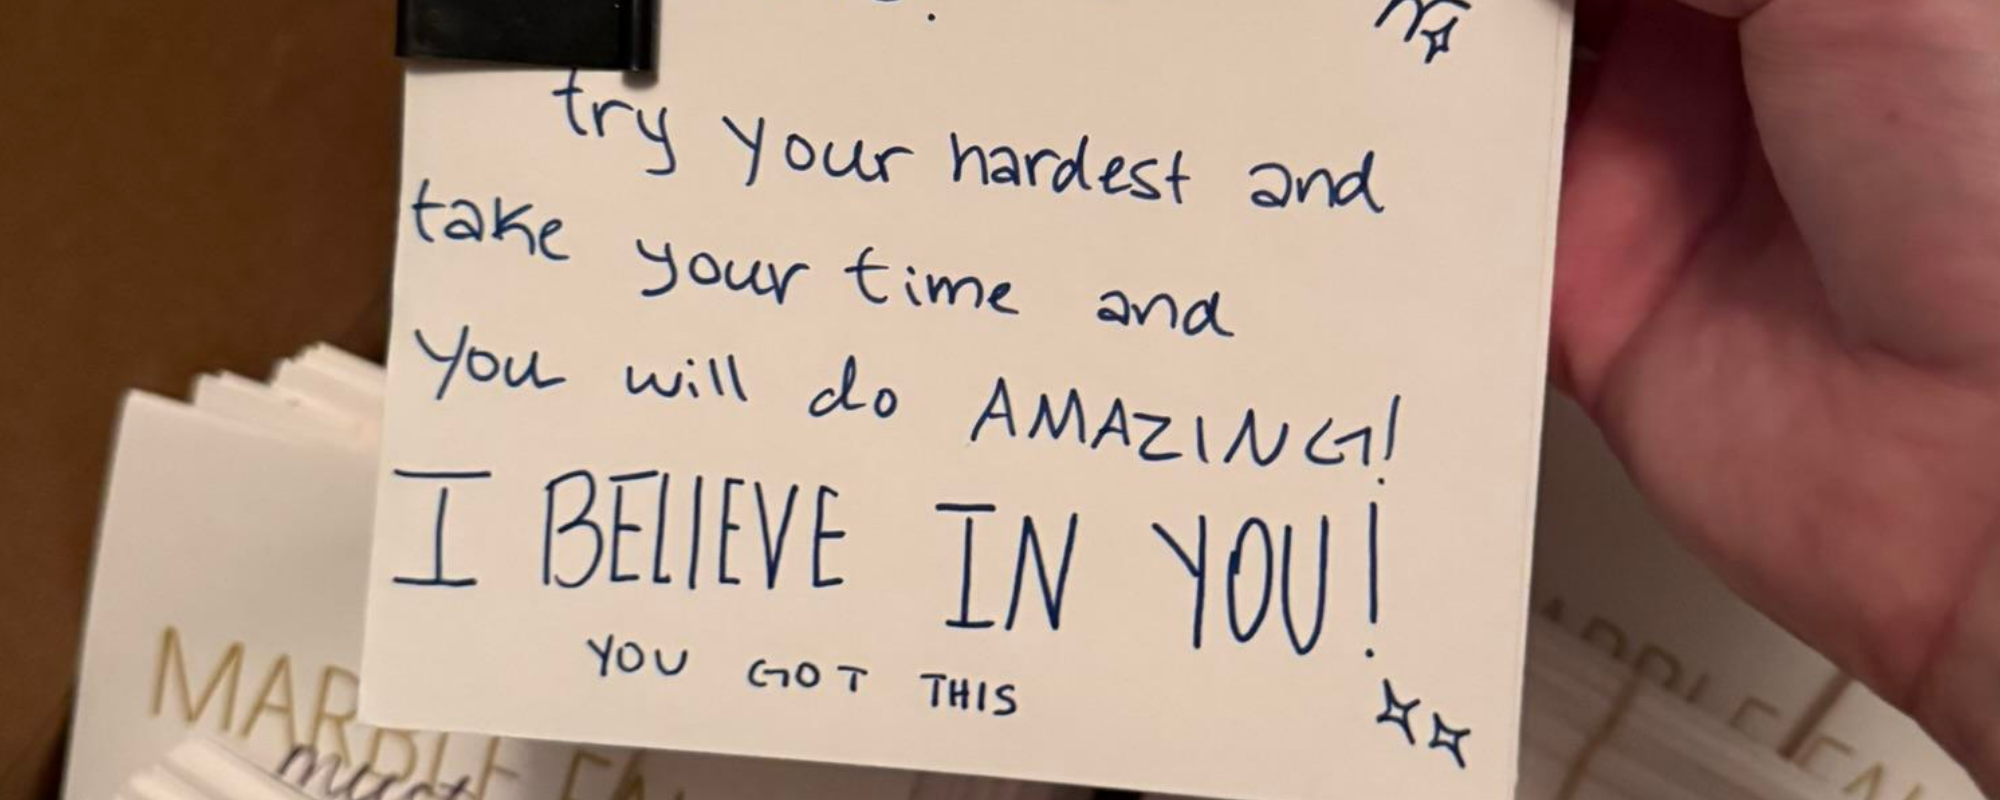 try your hardest and
take your time and
you will do AMAZING!
I BELIEVE IN YOU!
YOU GOT THIS
MARBLE FA